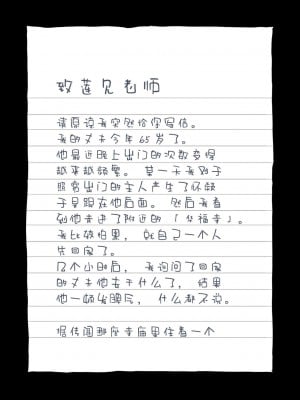 致莲见老师
请原谅我突然给你写信。
我的丈夫今年65岁了。
他最近晚上出门的次数变得
越来越频繁。 某一天我对于
照常出门的主人产生了怀疑
于是跟在他后面。 然后我看
到他走进了附近的「公福寺」。
我比较怕黑, 就自己一个人
先回家了。
几个小时后, 我询问了回家
的丈夫他去干什么了, 结果
他一顿发脾气, 什么都不说。
据传闻那座寺庙里住着一个